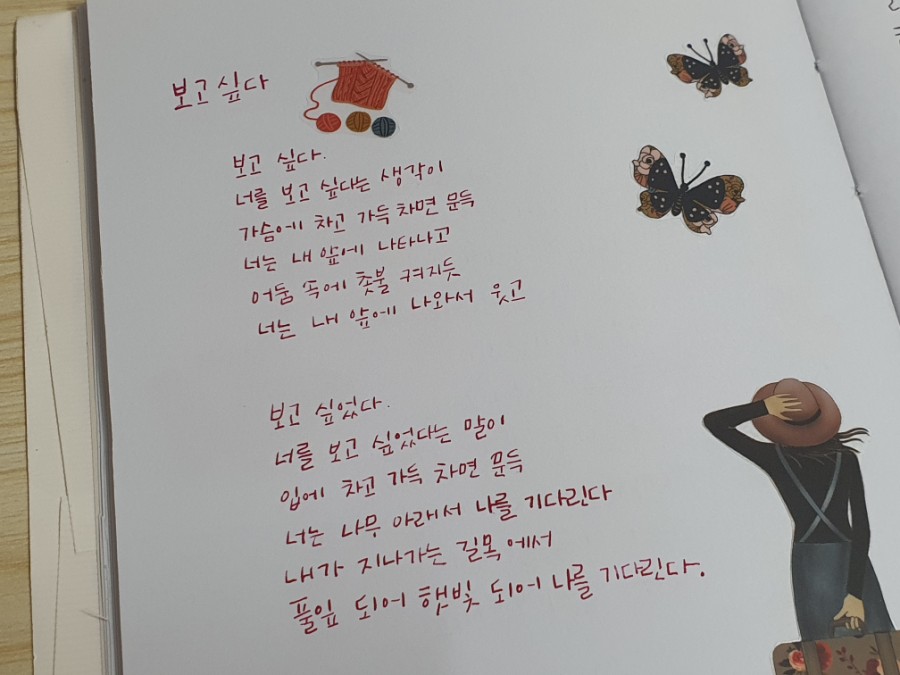 보고 싶다
보고 싶다.
너를 보고 싶다는 생각이
가슴에 차고 가득 차면 문득
너는 내 앞에 나타나고
어둠 속에 촛불 켜지듯
너는 내 앞에 나와서 웃고
보고 싶었다.
너를 보고 싶었다는 말이
입에 차고 가득 차면 문득
너는 나무 아래서 나를 기다린다
내가 지나가는 길목에서
풀잎 되어 햇빛 되어 나를 기다린다.